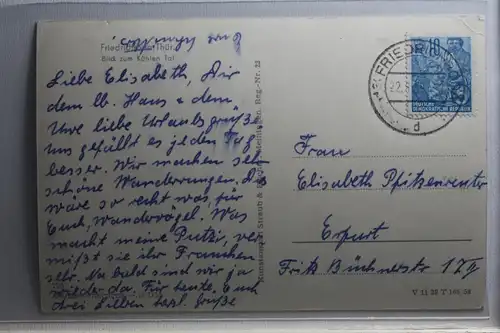 Friedrichroda/Thür.
Blick zum Kühlen Tal
Liebe Elisabeth, Dir
dem lb. Hans u. dem
Uwe liebe Urlaubsgrüße
Uns gefällt es jeden Tag
besser. Wir machen sehr
schöne Wanderungen. Das
wäre so recht was für
Euch, Wandervögel. Was
macht meine Putzi, ver-
mißt sie ihr Frauchen
sehr. Na bald sind wir ja
wieder da. Für heute Euch
drei Lieben herzl. Grüße
Reg.-Nr. 33
Kunstanstalt Straub &
FRIEDRICHRODA
22.
d
10
DEUTSCHE
DEMOKRATISCHE REPUBLIK
Frau
Elisabeth Pfitzenreuter
Erfurt
Fritz Büchnerstr 17
V 11 28